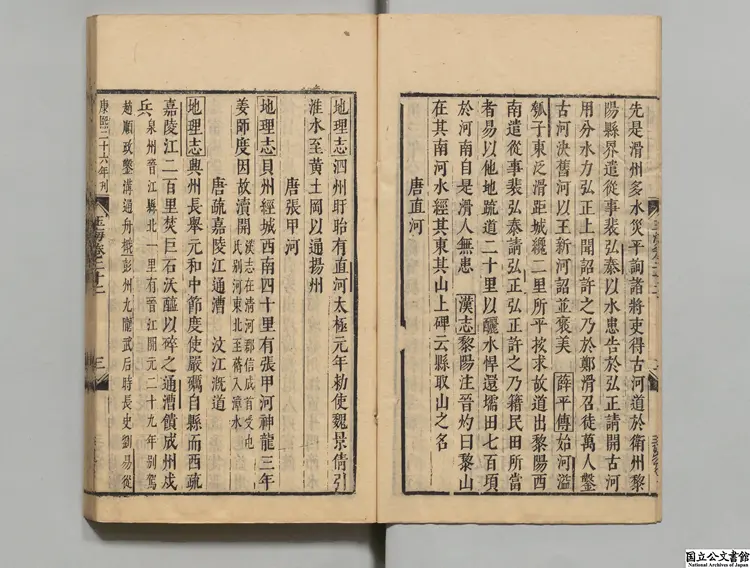 先是滑州多水災平詢諸將吏得古河道於衛州黎
陽縣界遣從事裴弘泰以水患告於弘正請開古河
用分水力弘正上聞詔許之乃於鄭滑召徒萬人鑿
古河決舊河以王新河詔並褒美 薛平傳始河溢
瓠子東泛滑距城纔二里所平按求故道出黎陽西
南遣從事裴弘泰請弘正弘正許之乃籍民田所當
者易以他地疏道二十里以釃水悍還壖田七百頃
於河南自是滑人無患 漢志黎陽注晉灼曰黎山
在其南河水經其東其山上碑云縣取山之名
唐直河
地理志泗州盱眙有直河太極元年勅使魏景倩引
淮水至黃土岡以通揚州
唐張甲河
地理志貝州經城西南四十里有張甲河神龍三年
姜師度因故瀆開 漢志在清河郡信成首受屯
氏別河東北至蓨入漳水
唐疏嘉陵江通漕 汶江漑道
地理志興州長舉元和中節度使嚴礪自縣而西疏
嘉陵江二百里焚巨石沃醯以碎之通漕饋成州戍
兵 泉州晉江縣北一里有晉江開元二十九年別駕
趙順政鑿溝通舟檝彭州九隴武后時長史劉易從
康熙二十六年刊
玉海卷二十二
三
国立公文書館
National Archives of Japan